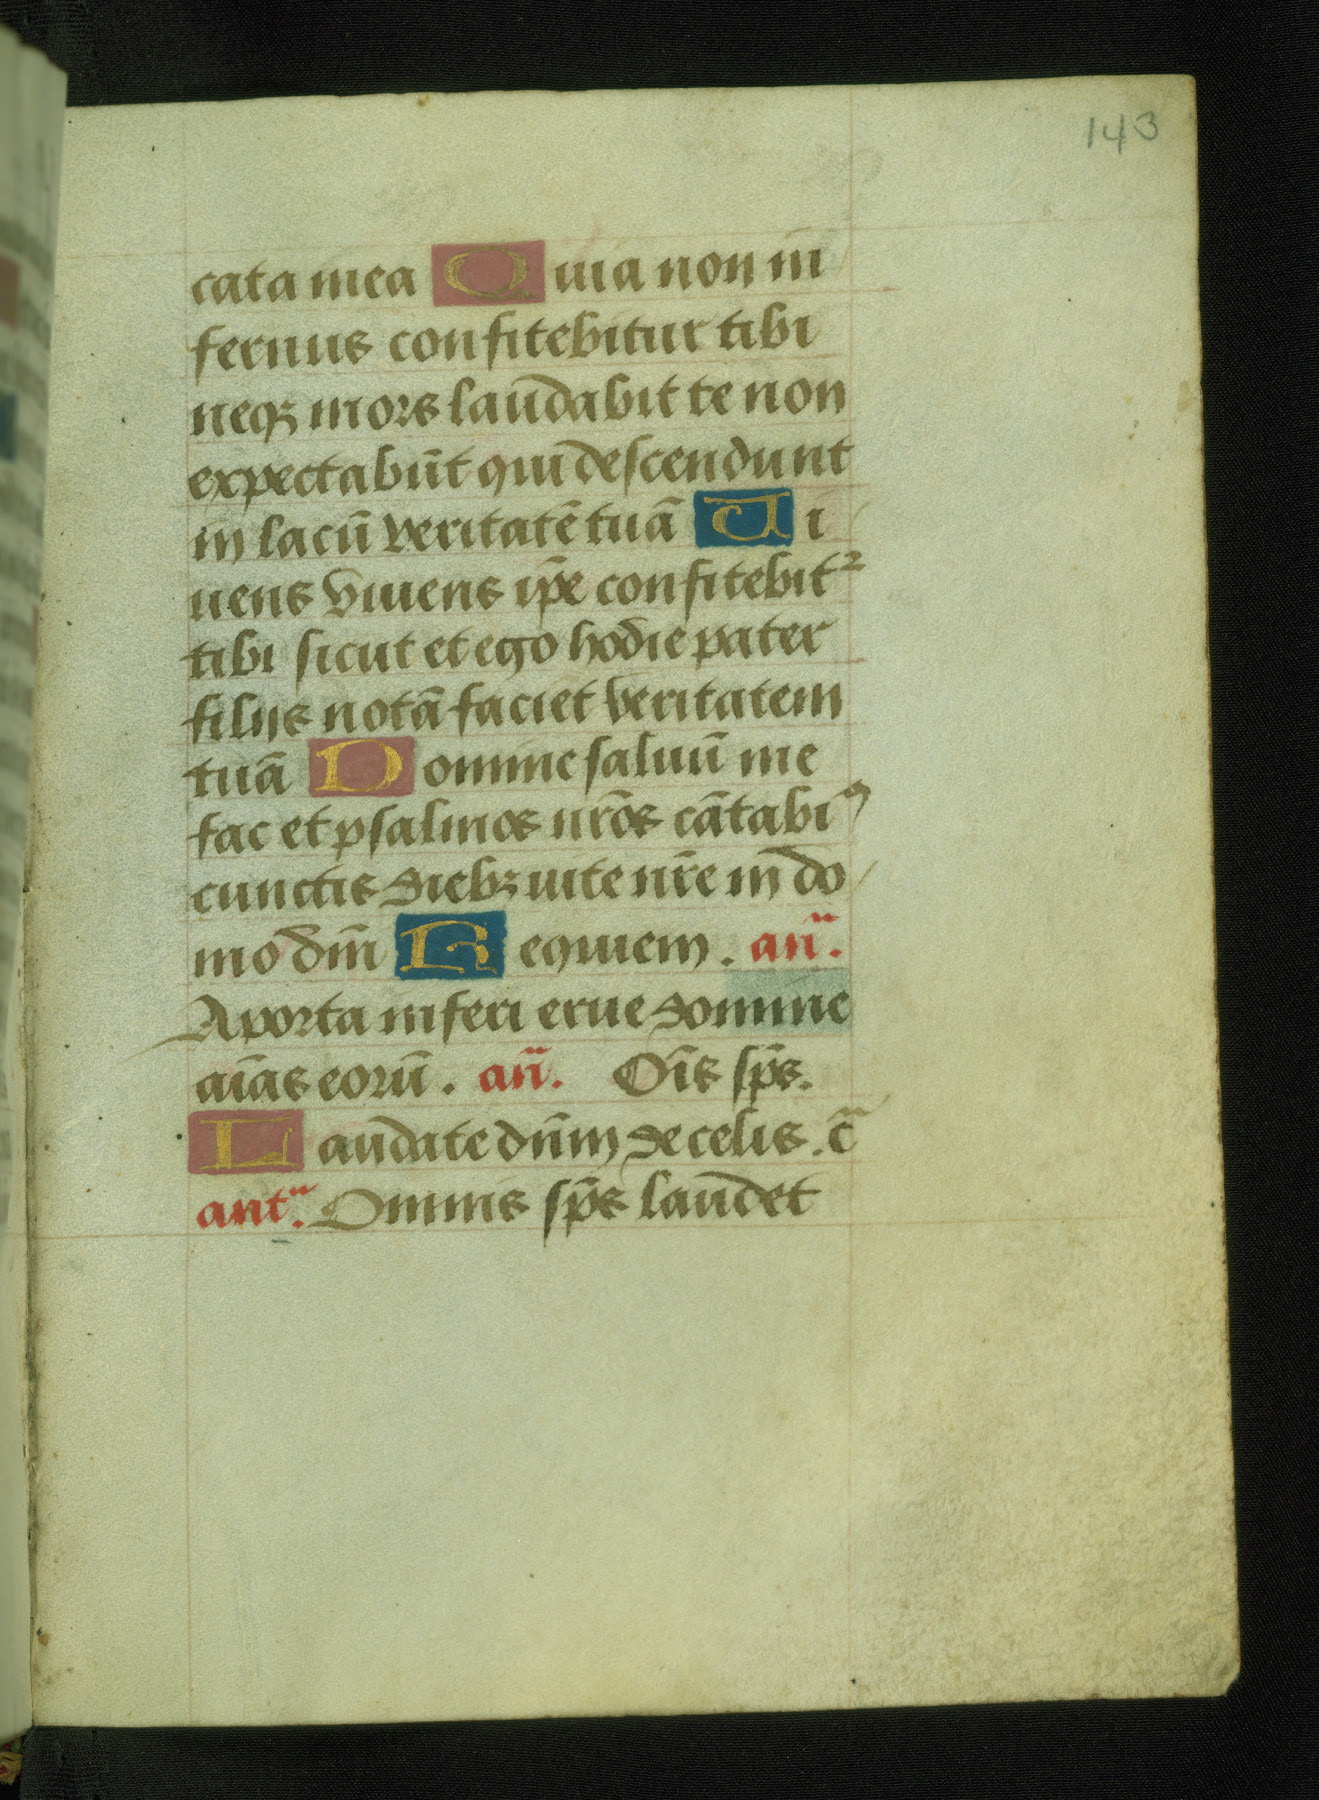 143
cata mea Quia non in
fernus confitebitur tibi
neqȝ mors laudabit te non
expectabūt qui descendunt
in lacū veritatē tuā Ui
uens viuens ip̄e confitebit᷑
tibi sicut et ego hodie pater
filijs notā faciet veritatem
tuā Domine saluū me
fac et psalmos nr̄os cātabiꝰ
cunctis diebȝ uite nr̄e in do
mo dm̄ Requiem . an̄.
A porta inferi erue domine
aīas eorū . an̄. Oīs sp̄s.
Laudate dūm de celis . c̄
ant. Omnis sp̄s laudet